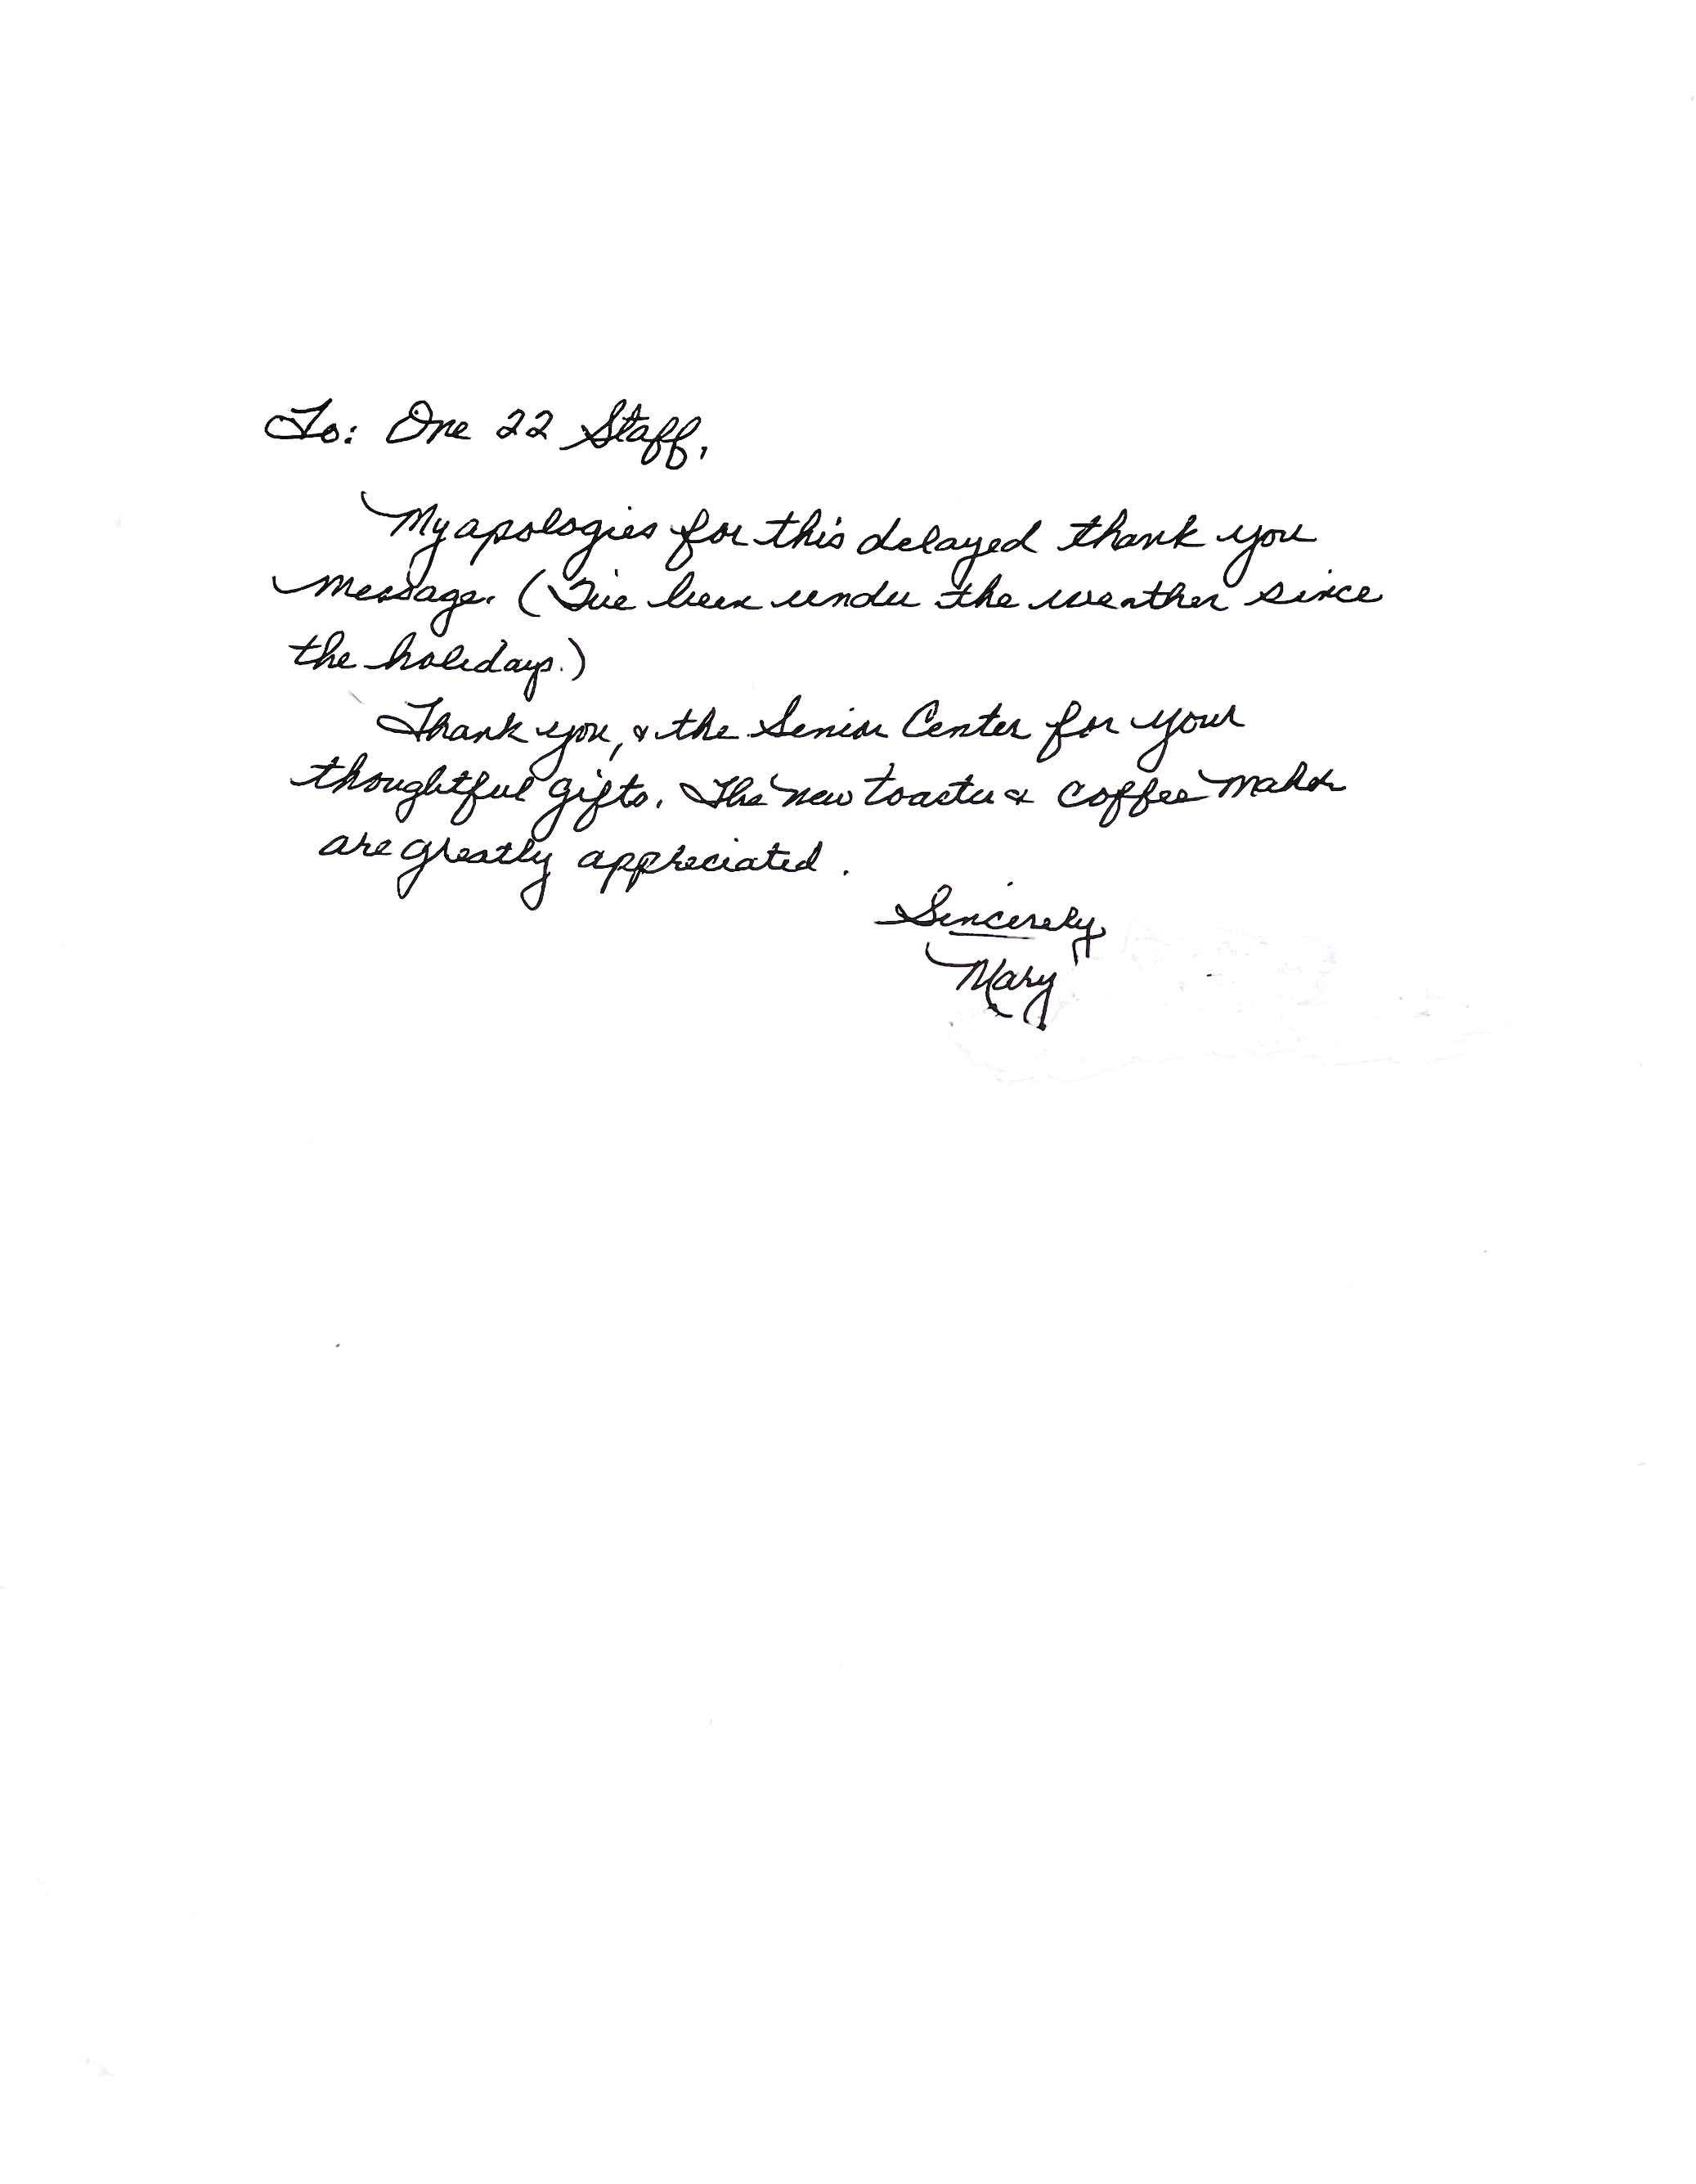 To: One 22 Staff,
My apologies for this delayed thank you
message. (I've been under the weather since
the holidays.)
Thank you, & the Senior Center for your
thoughtful gifts. The new toaster & coffee maker
are greatly appreciated.
Sincerely,
Mary